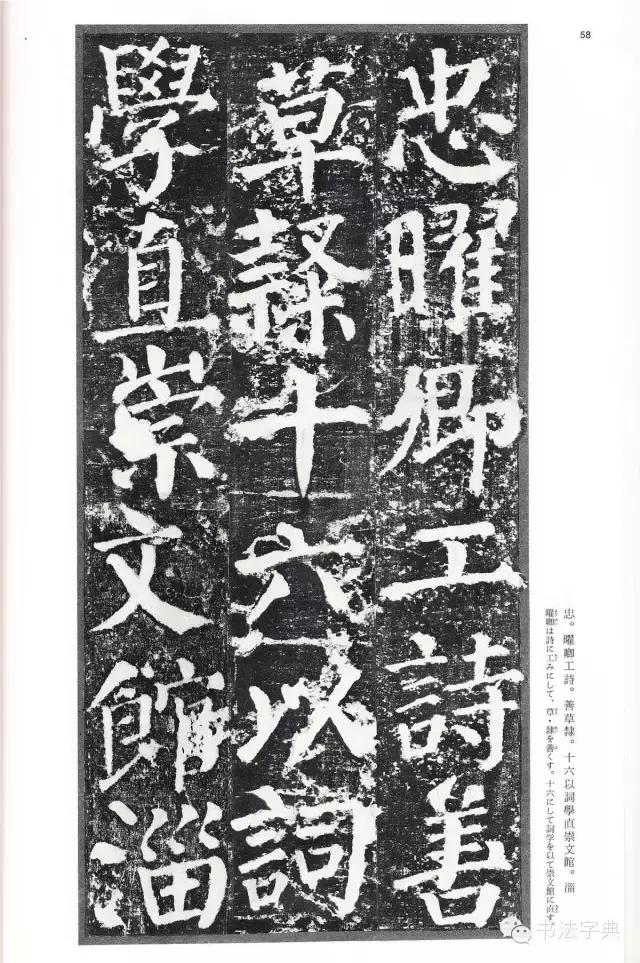 58
忠曜卿工詩善
草隸十六以詞
學直崇文館淄
忠。曜卿工詩。善草隸。十六以詞學直崇文館。淄
曜卿は詩に工みにして、草・隸を善くす。十六にして詞学を以て崇文館に直す。
书法字典